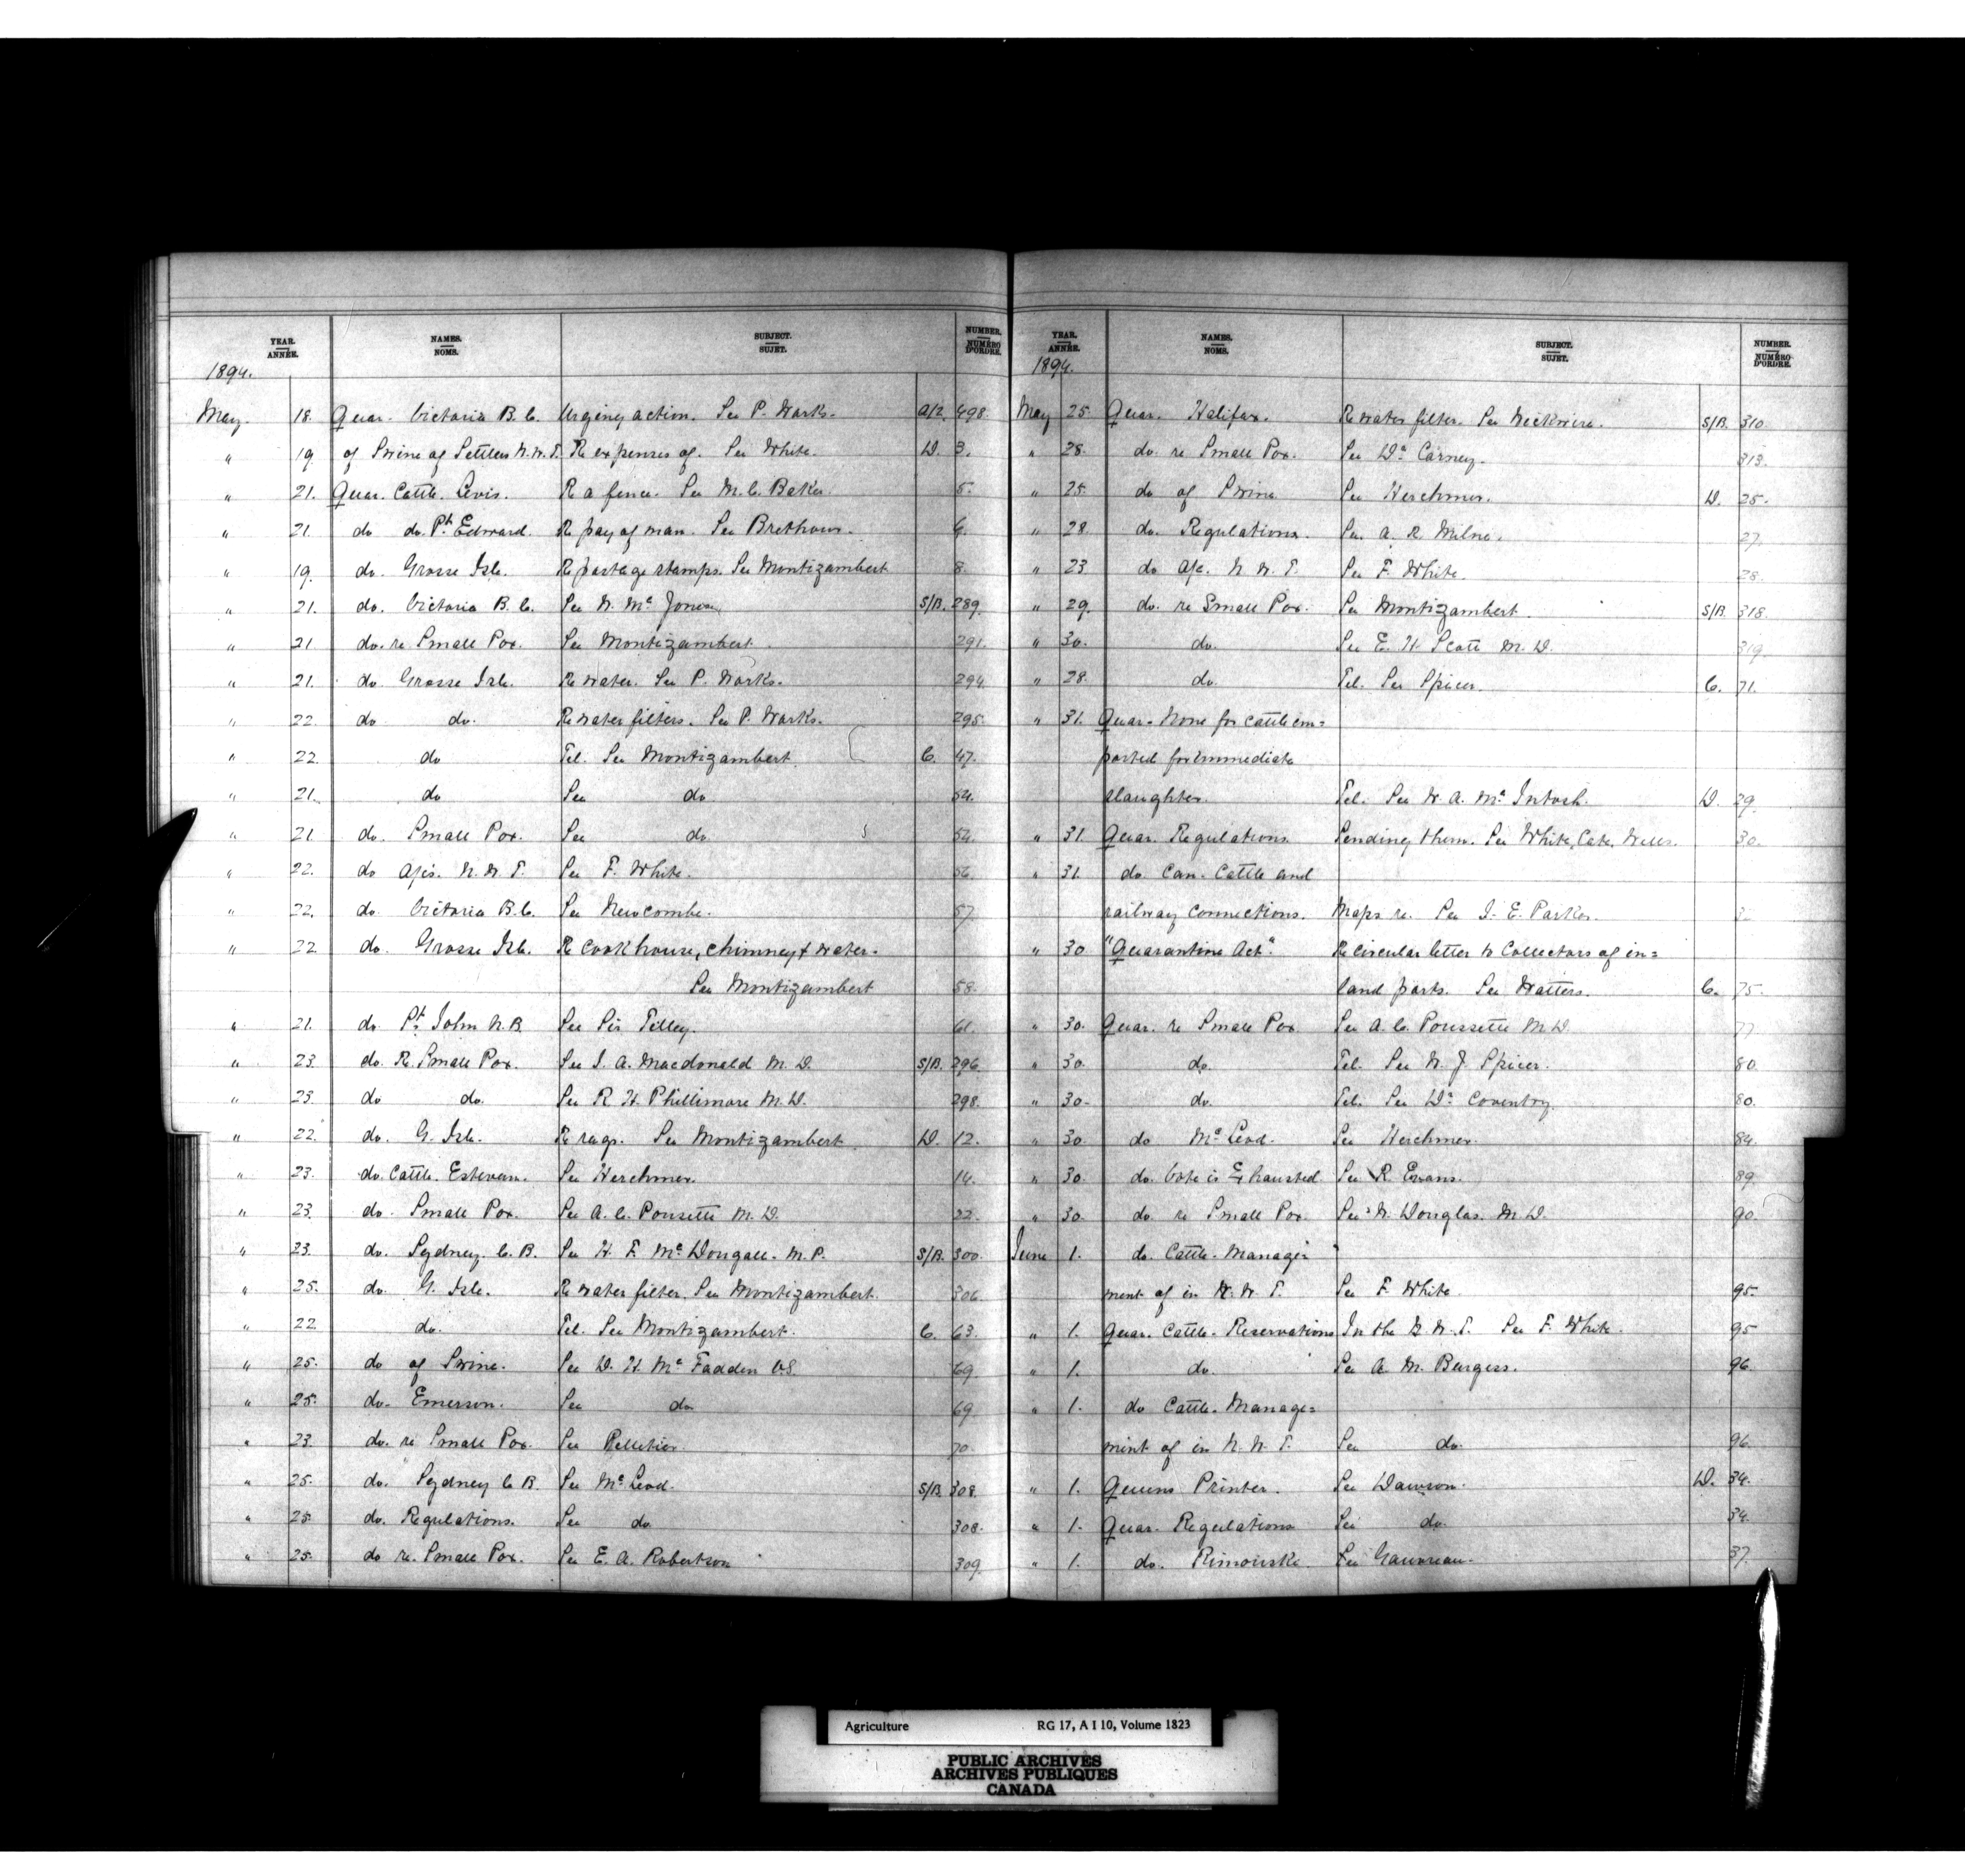 YEAR. ANNÉE. NAMES. NOMS. SUBJECT. SUJET. NUMBER. NUMÉRO D'ORDRE.
1894.
May 18. Quar. Victoria B.C. Urging action. See P. Works. A/2. 498.
" 19. of Swine of Settlers N.W.T. Re expenses of. See White. D. 3.
" 21. Quar. Cattle. Levis. Re a fence. See M.C. Baker. 5.
" 21. do do. Pt. Edward. Re pay of man. See Brethour. 6.
" 19. do. Grosse Isle. Re postage stamps. See Montizambert 8.
" 21. do. Victoria B.C. See W. Mc Jones. S/B. 289.
" 21 do. re Small Pox. See Montizambert. 291.
" 21. do Grosse Isle. Re water. See P. Works. 294.
" 22. do do. Re water filters. See P. Works. 295.
" 22. do Tel. See Montizambert. C. 47.
" 21. do See do 54.
" 21. do. Small Pox. See do 54.
" 22. do A/cs. N.W.T. See F. White. 56.
" 22. do. Victoria B.C. See Newcombe. 57
" 22. do. Grosse Isle. Re cook house, chimney & water.
See Montizambert 58.
" 21. do. St. John N.B. See Sir Tilley. 61.
" 23. do. Re. Small Pox. See J. A. Macdonald M.D. S/B. 296.
" 23. do do. See R. H. Phillimore M.D. 298.
" 22. do. G. Isle. Re rags. See Montizambert D. 12.
" 23. do. Cattle. Estevan. See Herchmer. 14.
" 23. do. Small Pox. See A. C. Pousette M.D. 22.
" 23. do. Sydney. C.B. See H. F. Mc Dougall. M.P. S/B. 300.
" 25. do. G. Isle. Re water filter. See Montizambert. 306.
" 22. do. Tel. See Montizambert. C. 63.
" 25. do of Swine. See D. H. Mc Fadden V.S. 69
" 25. do. Emerson. See do. 69
" 23. do. re Small Pox. See Pelletier. 70
" 25. do. Sydney C.B. See Mc Leod. S/B. 308.
" 25. do. Regulations. See do 308.
" 25. do re. Small Pox. See E. A. Robertson 309.
YEAR. ANNÉE. NAMES. NOMS. SUBJECT. SUJET. NUMBER. NUMÉRO D'ORDRE.
1894.
May 25. Quar. Halifax. Re water filter. See Wickwire. S/B. 310.
" 28. do. re Small Pox. See Dr. Carney. 313.
" 25. do of Swine See Herchmer. D. 25.
" 28. do. Regulations. See A. R. Milne. 27.
" 23 do A/c. N.W.T. See F. White. 28.
" 29. do. re Small Pox. See Montizambert. S/B. 318.
" 30. do. See E. H. Scott M.D. 319.
" 28. do. Tel. See Spicer. C. 71.
" 31. Quar. None for cattle im=
ported for immediate
slaughter. Tel. See W. A. Mc Intosh. D. 29.
" 31. Quar. Regulations Sending them. See White, Cate, Wells. 30.
" 31. do Can. Cattle and
railway connections. Maps re. See J. E. Parker.
" 30 "Quarantine Act". Re circular letter to Collectors of in=
land ports. See Watters. C. 75.
" 30. Quar. re Small Pox See A. C. Poussette M.D. 77
" 30. do. Tel. See W. J. Spicer. 80.
" 30. do. Tel. See Dr. Coventry. 80.
" 30. do Mc Leod. See Herchmer. 84.
" 30. do. Vote is Exhausted See R. Evans. 89
" 30. do re Small Pox See W. Douglas. M.D. 90.
June 1. do. Cattle. Manage=
ment of in N.W.T. See F. White. 95.
" 1. Quar. Cattle. Reservations In the N.W.T. See F. White. 95
" 1. do. See A. M. Burgess. 96.
" 1. do Cattle. Manage=
ment of in N.W.T. See do. 96.
" 1. Queens Printer. See Dawson. D. 34.
" 1. Quar. Regulations See do. 34.
" 1. do. Rimouski See Gauvreau. 37.
Agriculture RG 17, A I 10, Volume 1823
PUBLIC ARCHIVES
ARCHIVES PUBLIQUES
CANADA